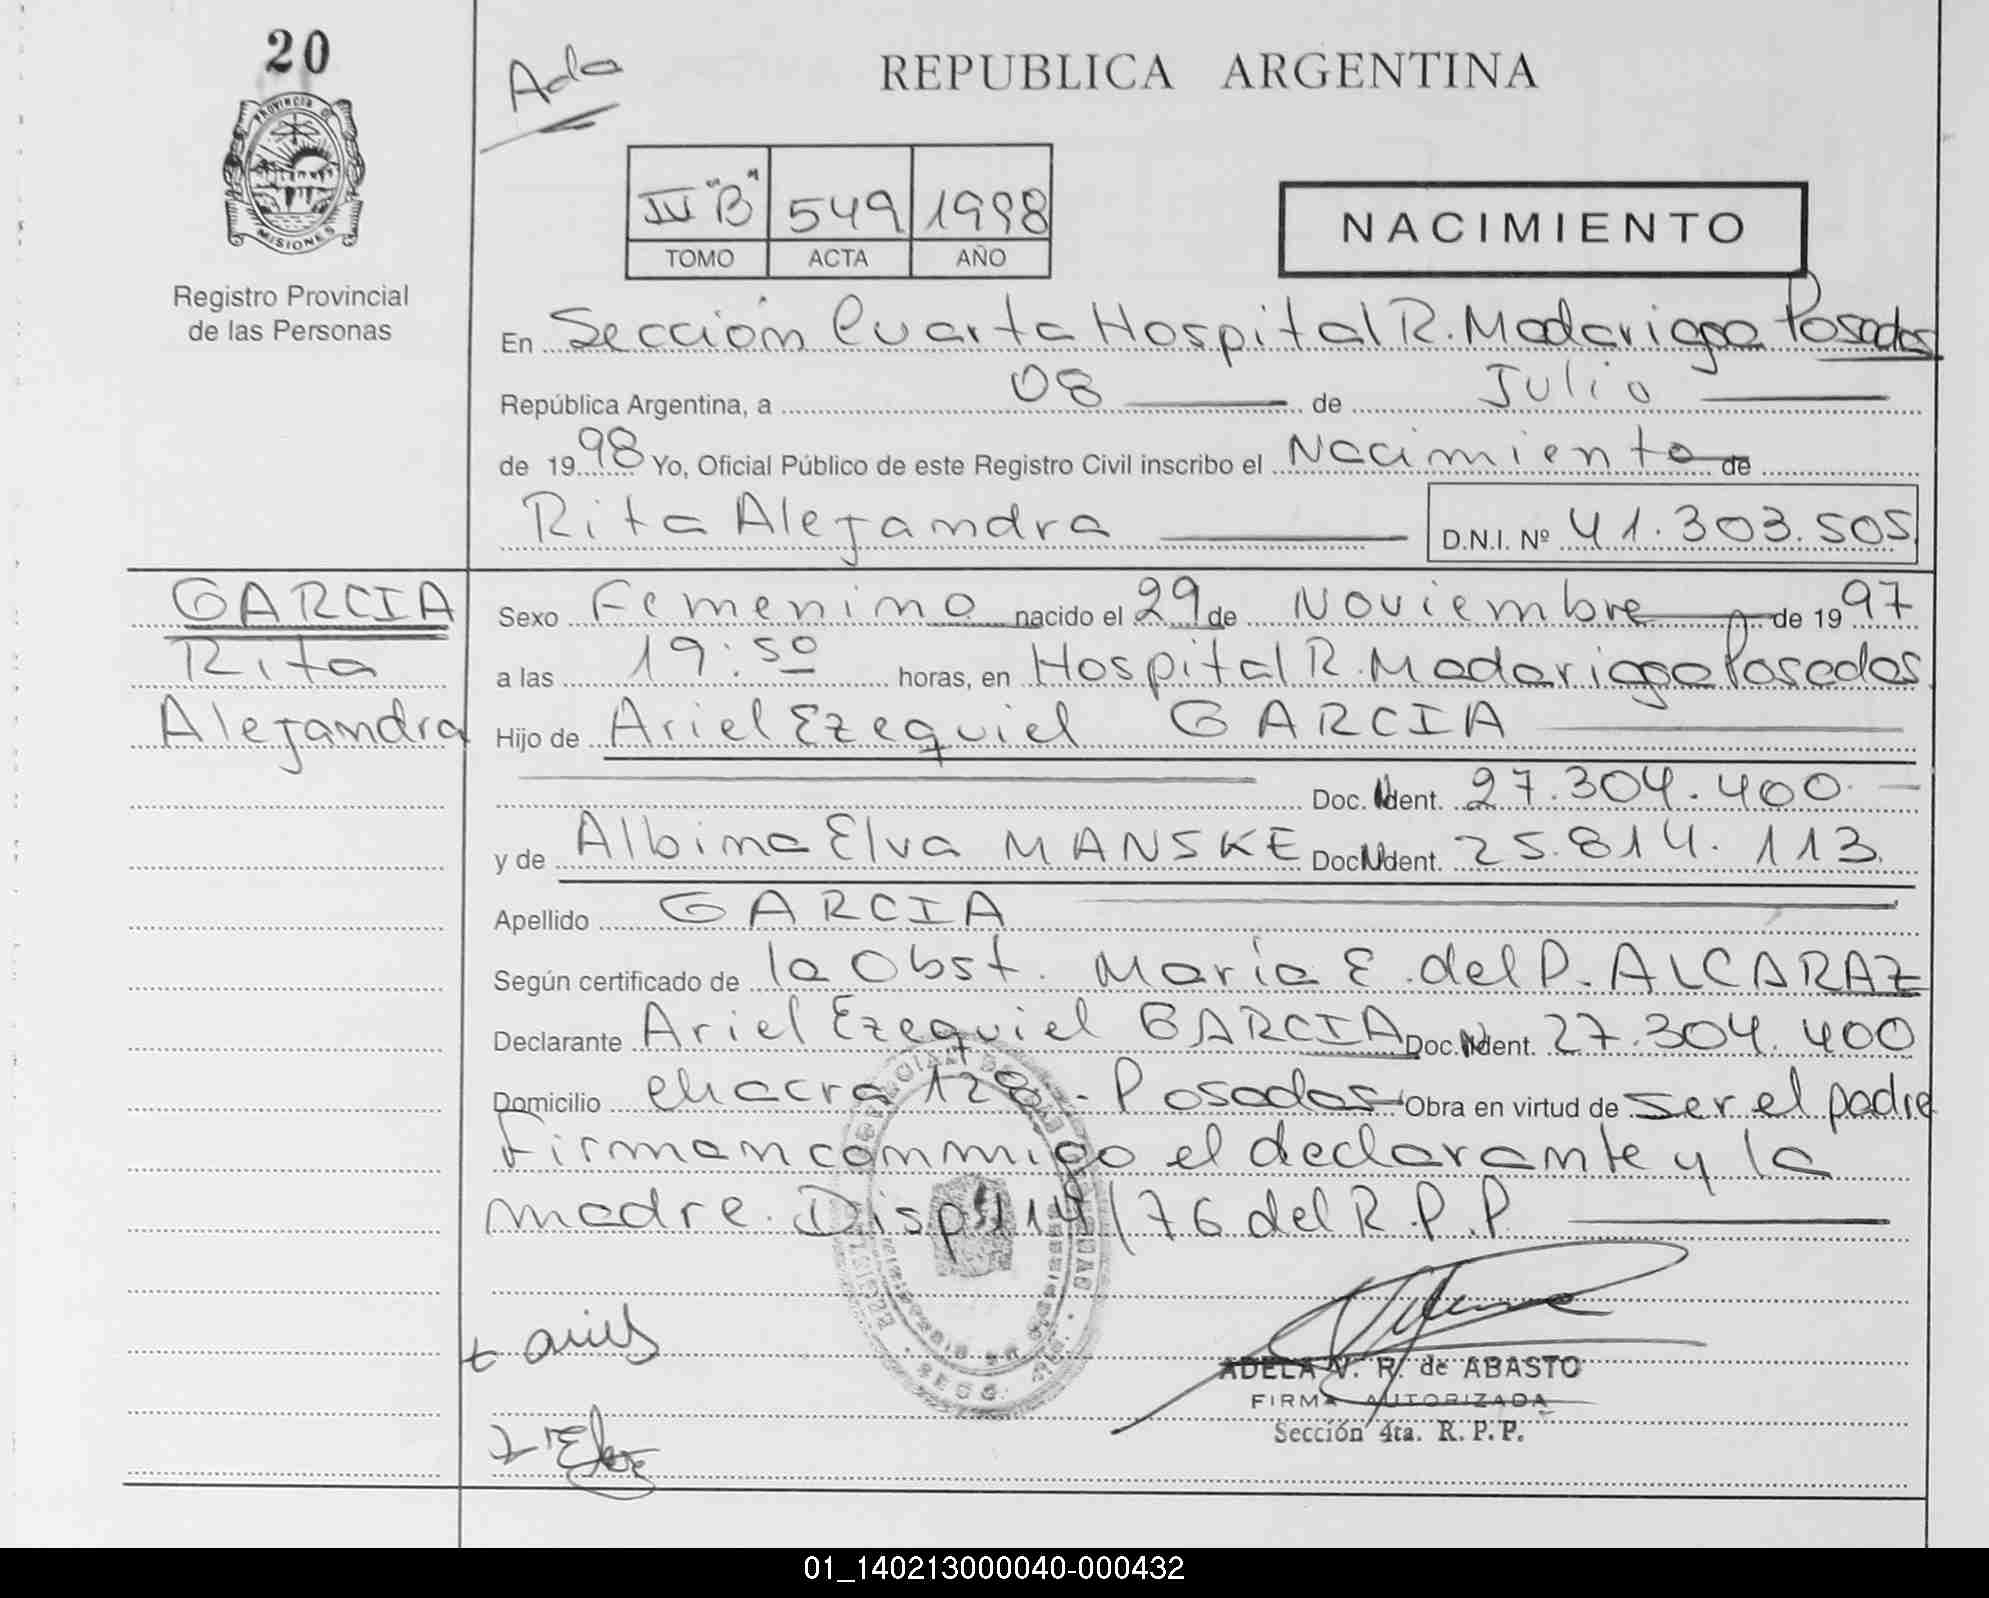 20
Ada
REPUBLICA ARGENTINA
PROVINCIA D
MISIONES
Registro Provincial
de las Personas
IV "B" 549 1998
TOMO ACTA AÑO
NACIMIENTO
En Sección Cuarta Hospital R. Madariaga Posadas
República Argentina, a 08 de Julio
de 1998 Yo, Oficial Público de este Registro Civil inscribo el Nacimiento de
Rita Alejandra D.N.I. Nº 41.303.505
GARCIA
Rita
Alejandra
Sexo Femenino nacido el 29 de Noviembre de 1997
a las 19:50 horas, en Hospital R. Madariaga Posadas
Hijo de Ariel Ezequiel GARCIA
Doc. Ident. 27.304.400
y de Albina Elva MANSKE Doc. Ident. 25.814.113.
Apellido GARCIA
Según certificado de la Obst. Maria E. del P. ALCARAZ
Declarante Ariel Ezequiel GARCIA Doc. Ident. 27.304.400
Domicilio chacra 128 - Posadas Obra en virtud de ser el padre
Firman conmigo el declarante y la
madre. Disp. 114/76 del R.P.P
ADELA V. R. de ABASTO
FIRMA AUTORIZADA
Sección 4ta. R. P. P.
01_140213000040-000432